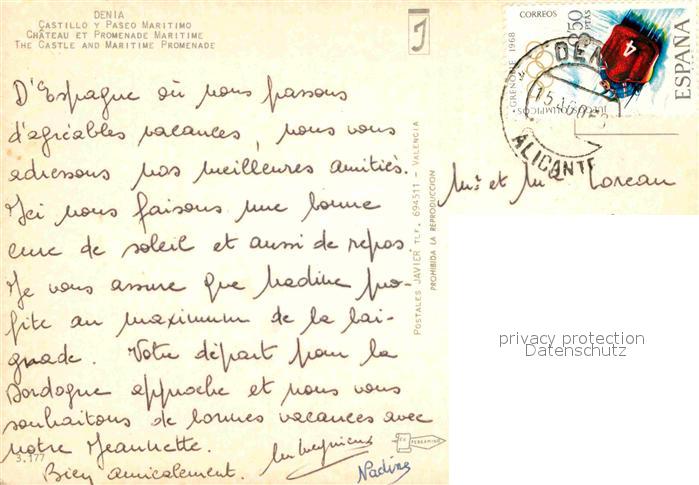 DENIA
CASTILLO Y PASEO MARITIMO
CHÂTEAU ET PROMENADE MARITIME
THE CASTLE AND MARITIME PROMENADE
D'Espagne où nous passons
d'agréables vacances, nous vous
adressons nos meilleures amitiés.
Ici nous faisons une bonne
cure de soleil et aussi de repos
Je vous assure que Nadine pro-
fite au maximum de la bai-
gnade. Votre départ pour la
Dordogne approche et nous vous
souhaitons de bonnes vacances avec
votre Jeannette.
3.177
Bien amicalement.
Nadine
POSTALES JAVIER TLF. 694511 - VALENCIA
PROHIBIDA LA REPRODUCCION
PERGAMINO
CORREOS
50
PTAS
ESPAÑA
GRENOBLE 1968
4
DENIA
ALICANTE
Mr et Me Loreau
privacy protection
Datenschutz